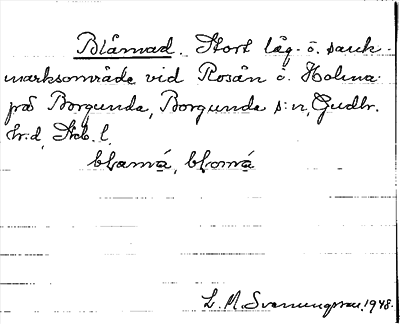 Blåmad. Stort låg- o. sank-
marksområde vid Rosån o. Holma
på Borgunda, Borgunda s:n, Gudhr.
hr.d, Skb. l.
blamá, blomá
L. M. Svanungsson, 1948.